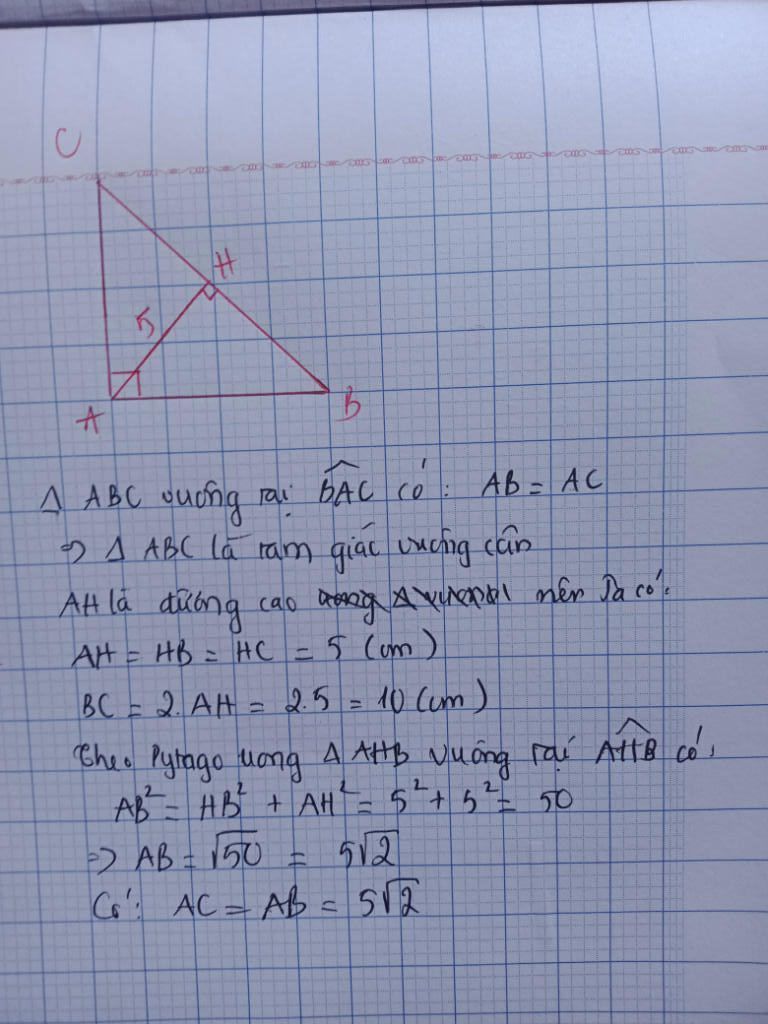 C
H
5
A
B
Δ ABC vuông tại BAC có: AB = AC
=> Δ ABC là tam giác vuông cân
AH là đường cao nên ta có:
AH = HB = HC = 5 (cm)
BC = 2. AH = 2.5 = 10 (cm)
Theo Pytago trong Δ AHB vuông tại AHB có:
AB² = HB² + AH² = 5² + 5² = 50
=> AB = √50 = 5√2
Có: AC = AB = 5√2